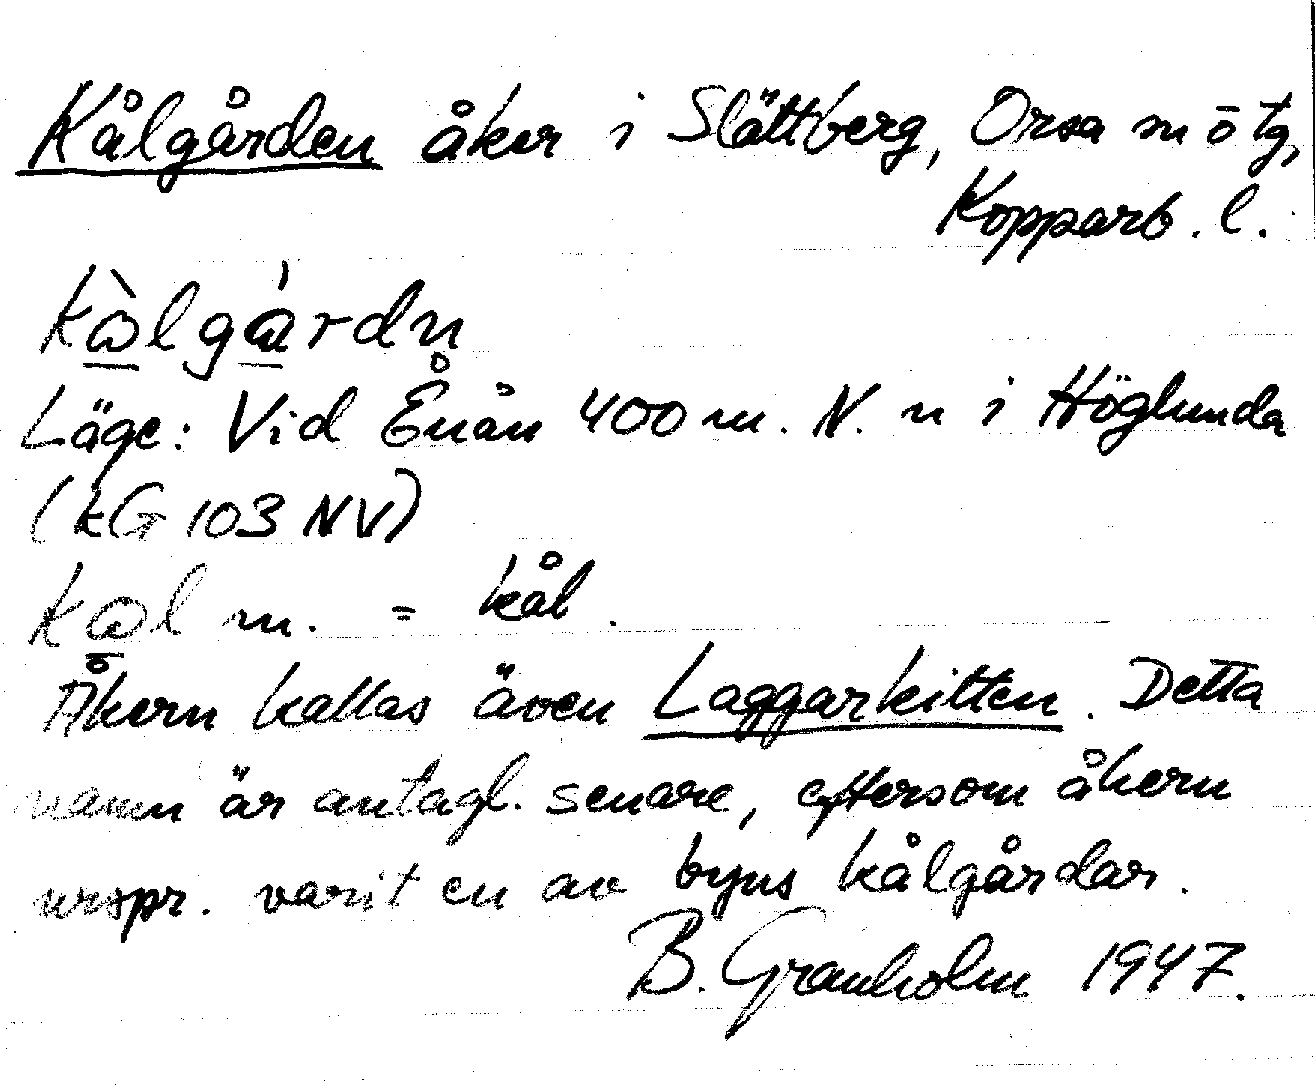 Kålgården åker i Slättberg, Orsa sn ō tg,
Kopparb. l.
kὼ̲lgώ̲rdn
Läge: Vid Enån 400 m. N. n i Höglunda
(kG 103 NV)
kω̲l m. = kål.
Åkern kallas även Laggarkitten. Detta
namn är antagl. senare, eftersom åkern
urspr. varit en av byns kålgårdar.
B. Granholm 1947.